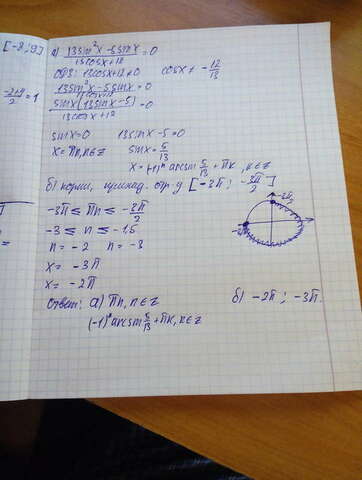 [-2; 9]
-2+9/2 = 1
а) 13sin²x - 5sinx / 13cosx+12 = 0
ОДЗ: 13cosx+12≠0 cosx ≠ -12/13
13sin²x - 5sinx / 13cosx+12 = 0
sinx(13sinx-5) / 13cosx+12 = 0
sinx=0 13sinx-5=0
x=πn, n∈z sinx = 5/13
x=(-1)ⁿ arcsin 5/13 + πk, k∈z
б) корни, принад. отр-у [-3π; -3π/2]
-3π ≤ πn ≤ -3π/2
-3 ≤ n ≤ -1.5
n = -2 n = -3
x = -3π
x = -2π
Ответ: а) πn, n∈z б) -2π; -3π.
(-1)ᵏ arcsin 5/13 + πk, k∈z
-3π/2
-3π